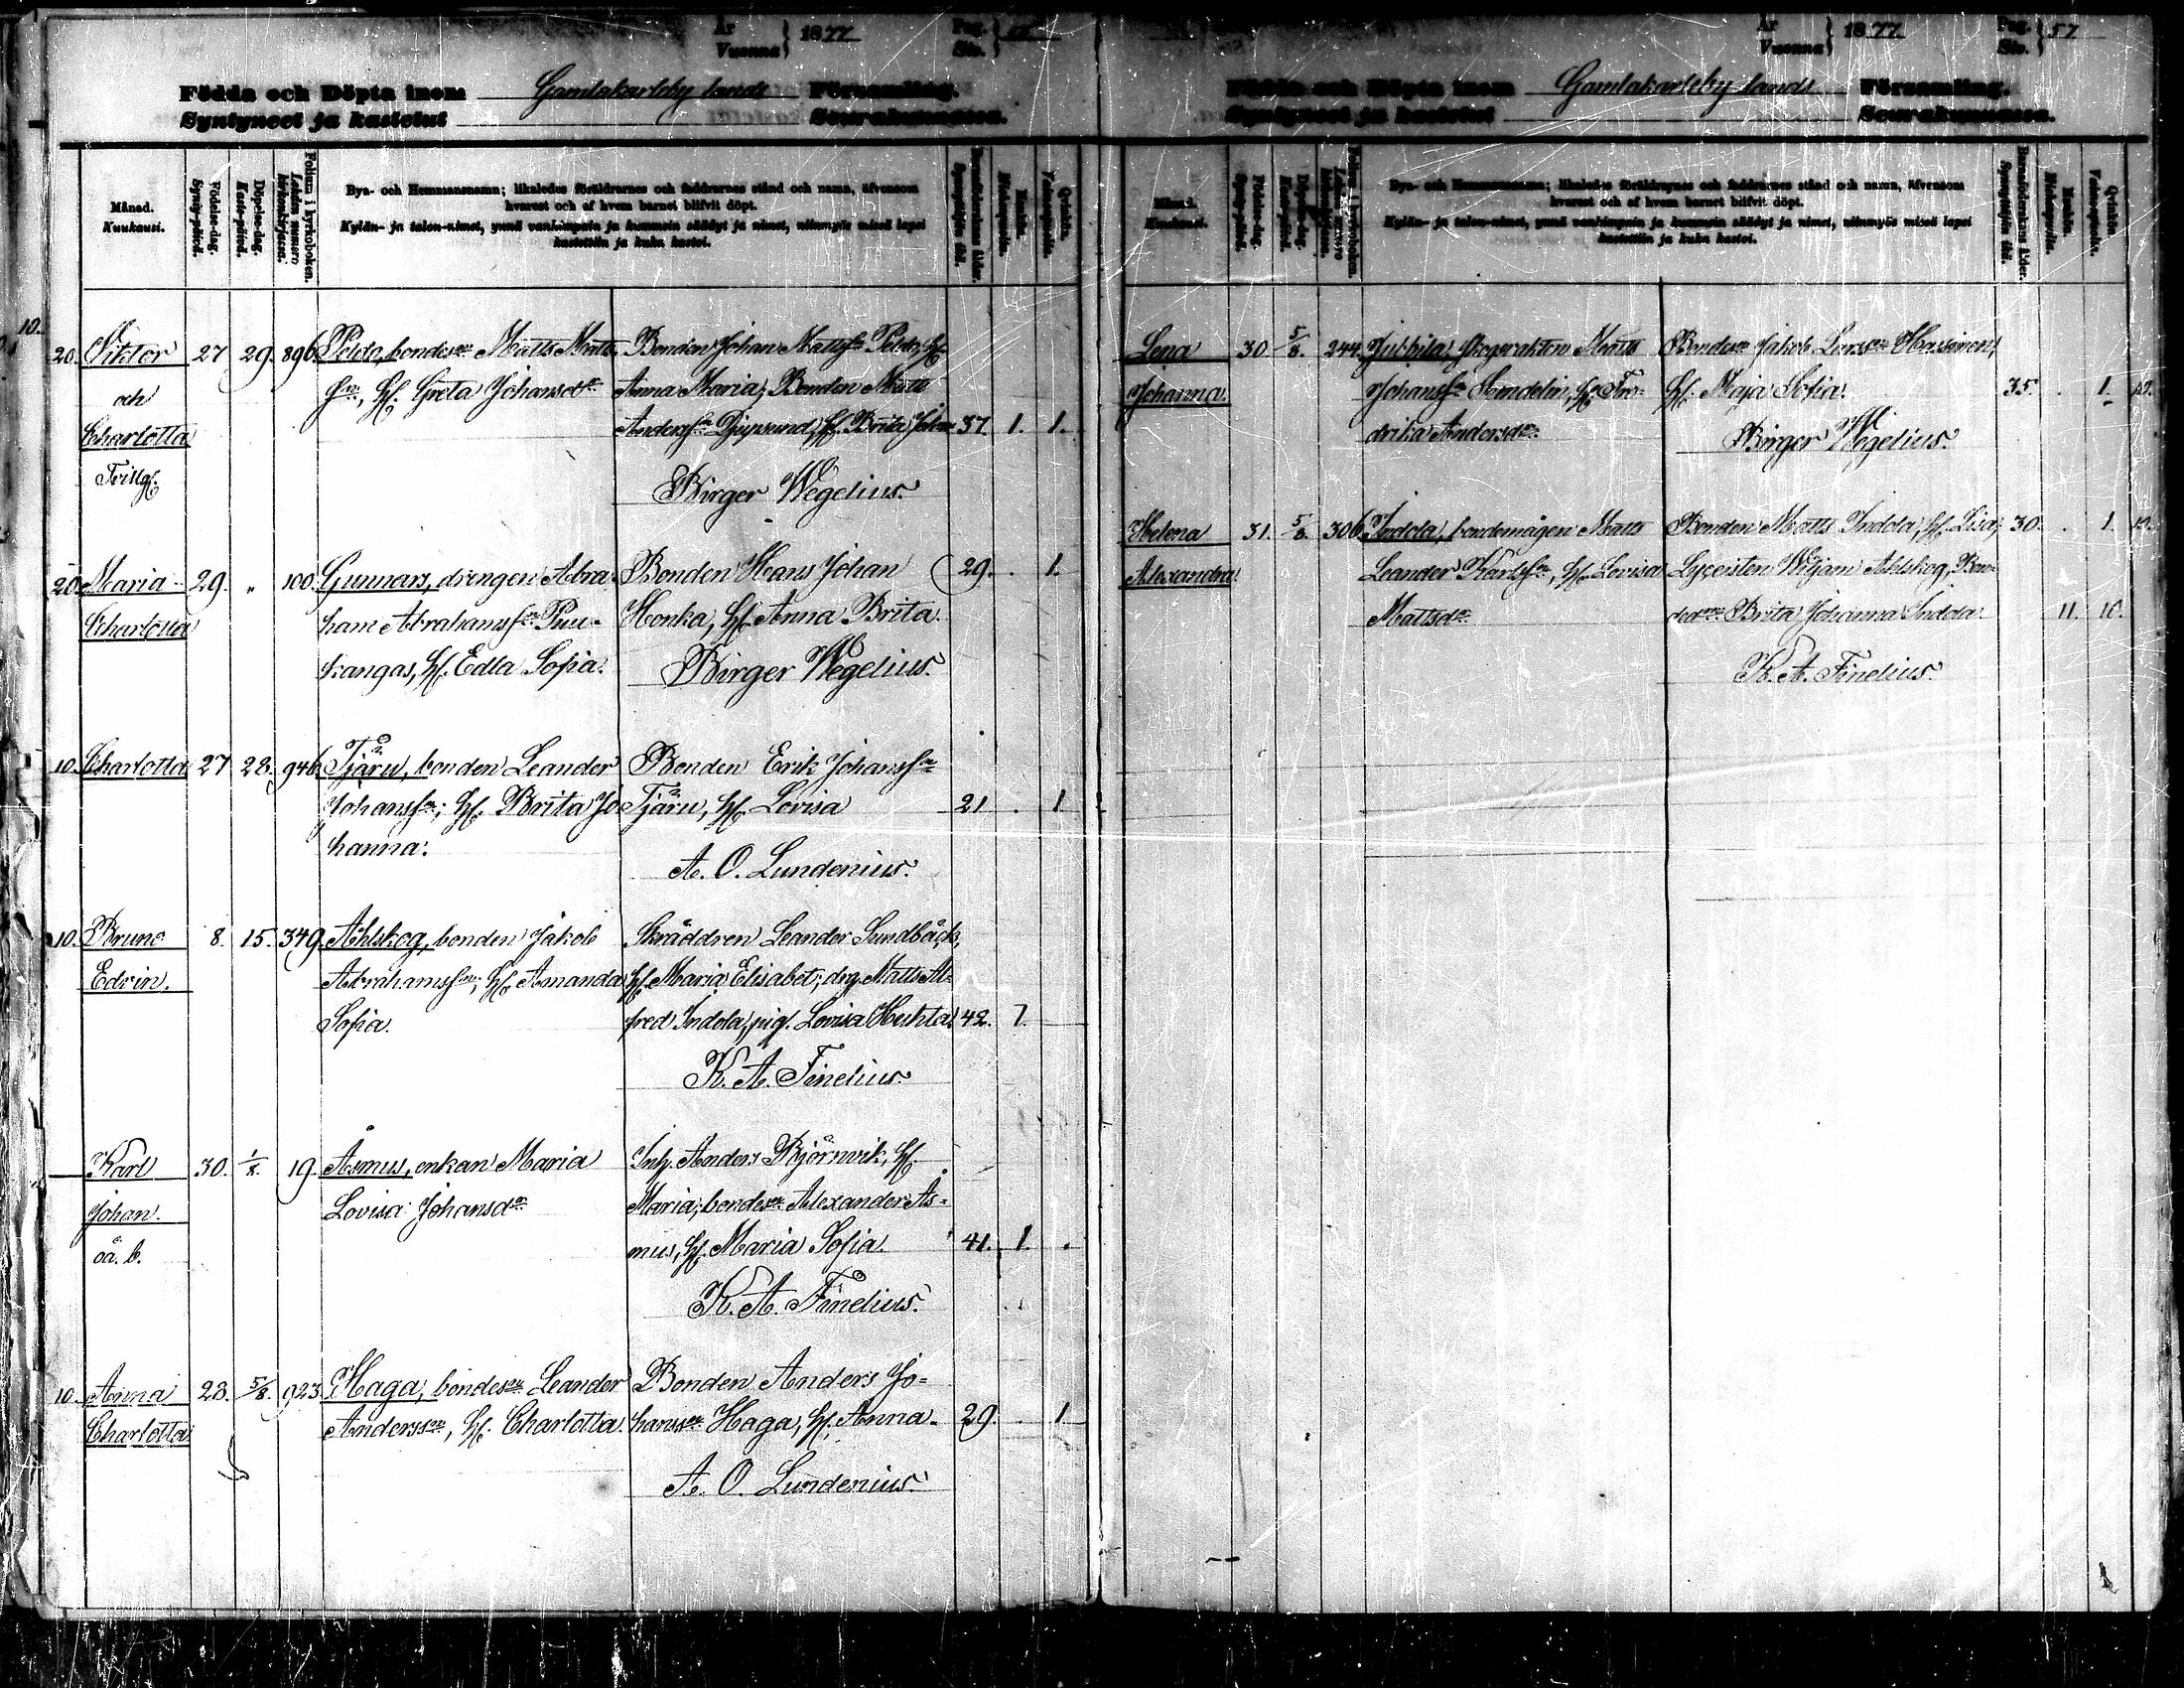 År
Vuonna } 1877
Pag.
Siv.
Födda och Döpta inom Gamlakarleby lands Församling.
Syntyneet ja kastetut Seurakunnassa.
Månad.
Kuukausi.
Födelse-dag.
Synty-päivä.
Döpelse-dag.
Kaste-päivä.
Folium i kyrkoboken.
Lehden numero kirkonkirjassa.
Bya- och Hemmansnamn; likaledes föräldrarnes och faddrarnes stånd och namn, äfvensom
hvarest och af hvem barnet blifvit döpt.
Kylän- ja talon-nimet, ynnä vanhimpain ja kummein säädyt ja nimet, niinmyös missä lapsi
kastettiin ja kuka kastoi.
Barnaföderskans ålder.
Synnyttäjän ikä.
Mankön.
Miehenpuolia.
Qvinkön.
Vaimonpuolia.
10.
20. Viktor 27 29. 896. Peldo, bondes. Matts Matts Bonden Johan Mattss. Peldo, H.
och sn, H. Greta Johansdr Anna Maria; Bonden Matts
Charlotta Anderss. Djupsund, H. Brita Johan 37. 1. 1.
Tvillg.
Birger Wegelius.
20. Maria 29. " 100. Gunnars, drengen Abra Bonden Hans Johan 29. . 1.
Charlotta ham Abrahamss. Puu- Honka, H. Anna Brita.
kangas, H. Edla Sofia. Birger Wegelius.
10. Charlotta 27 28. 946. Tjäru, bonden Leander Bonden Erik Johanss.
Johanss.; H. Brita Jo Tjäru, H. Lovisa 21 . 1
hanna. A. O. Lundenius.
10. Bruno 8. 15. 349. Ahlskog, bonden Jakob Skräddren Leander Sundbäck,
Edvin. Abrahamss.; H. Amanda H. Maria Elisabet; drg. Matts Al-
Sofia. fred Indola, pig. Lovisa Huhta. 42. 7.
K. A. Finelius.
Karl 30. 1/8. 19. Åsmus, enkan Maria Inh. Anders Björnvik, H.
Johan. Lovisa Johansdr Maria; bondes. Alexander Ås-
oä. b. mus, H. Maria Sofia. 41. 1. .
K. A. Finelius.
10. Anna 28. 5/8. 923. Haga, bondes. Leander Bonden Anders Jo-
Charlotta Anderss., H. Charlotta. hanss. Haga, H. Anna. 29. . 1
A. O. Lundenius.
År
Vuonna } 1877
Pag.
Siv. } 57
Födda och Döpta inom Gamlakarleby lands Församling.
Syntyneet ja kastetut Seurakunnassa.
Månad.
Kuukausi.
Födelse-dag.
Synty-päivä.
Döpelse-dag.
Kaste-päivä.
Folium i kyrkoboken.
Lehden numero kirkonkirjassa.
Bya- och Hemmansnamn; likaledes föräldrarnes och faddrarnes stånd och namn, äfvensom
hvarest och af hvem barnet blifvit döpt.
Kylän- ja talon-nimet, ynnä vanhimpain ja kummein säädyt ja nimet, niinmyös missä lapsi
kastettiin ja kuka kastoi.
Barnaföderskans ålder.
Synnyttäjän ikä.
Mankön.
Miehenpuolia.
Qvinkön.
Vaimonpuolia.
Lena 30. 5/8. 244. Jukkila, skogvakten Matts Bondes. Jakob Larss. Hassinen,
Johanna. Johanss. Sandelin, H. Fre- H. Maja Sofia. 35. . 1. 10.
drika Andersdr Birger Wegelius.
Helena 31. 5/8. 306. Indola, bondemågen Matts Bonden Matts Indola, H. Lisa; 30. . 1. 10.
Alexandra. Leander Karlss., H. Lovisa Lyceisten Wiljam Ahlskog, Bon-
Mattsdr dedr Brita Johanna Indola. 11. 10.
K. A. Finelius.